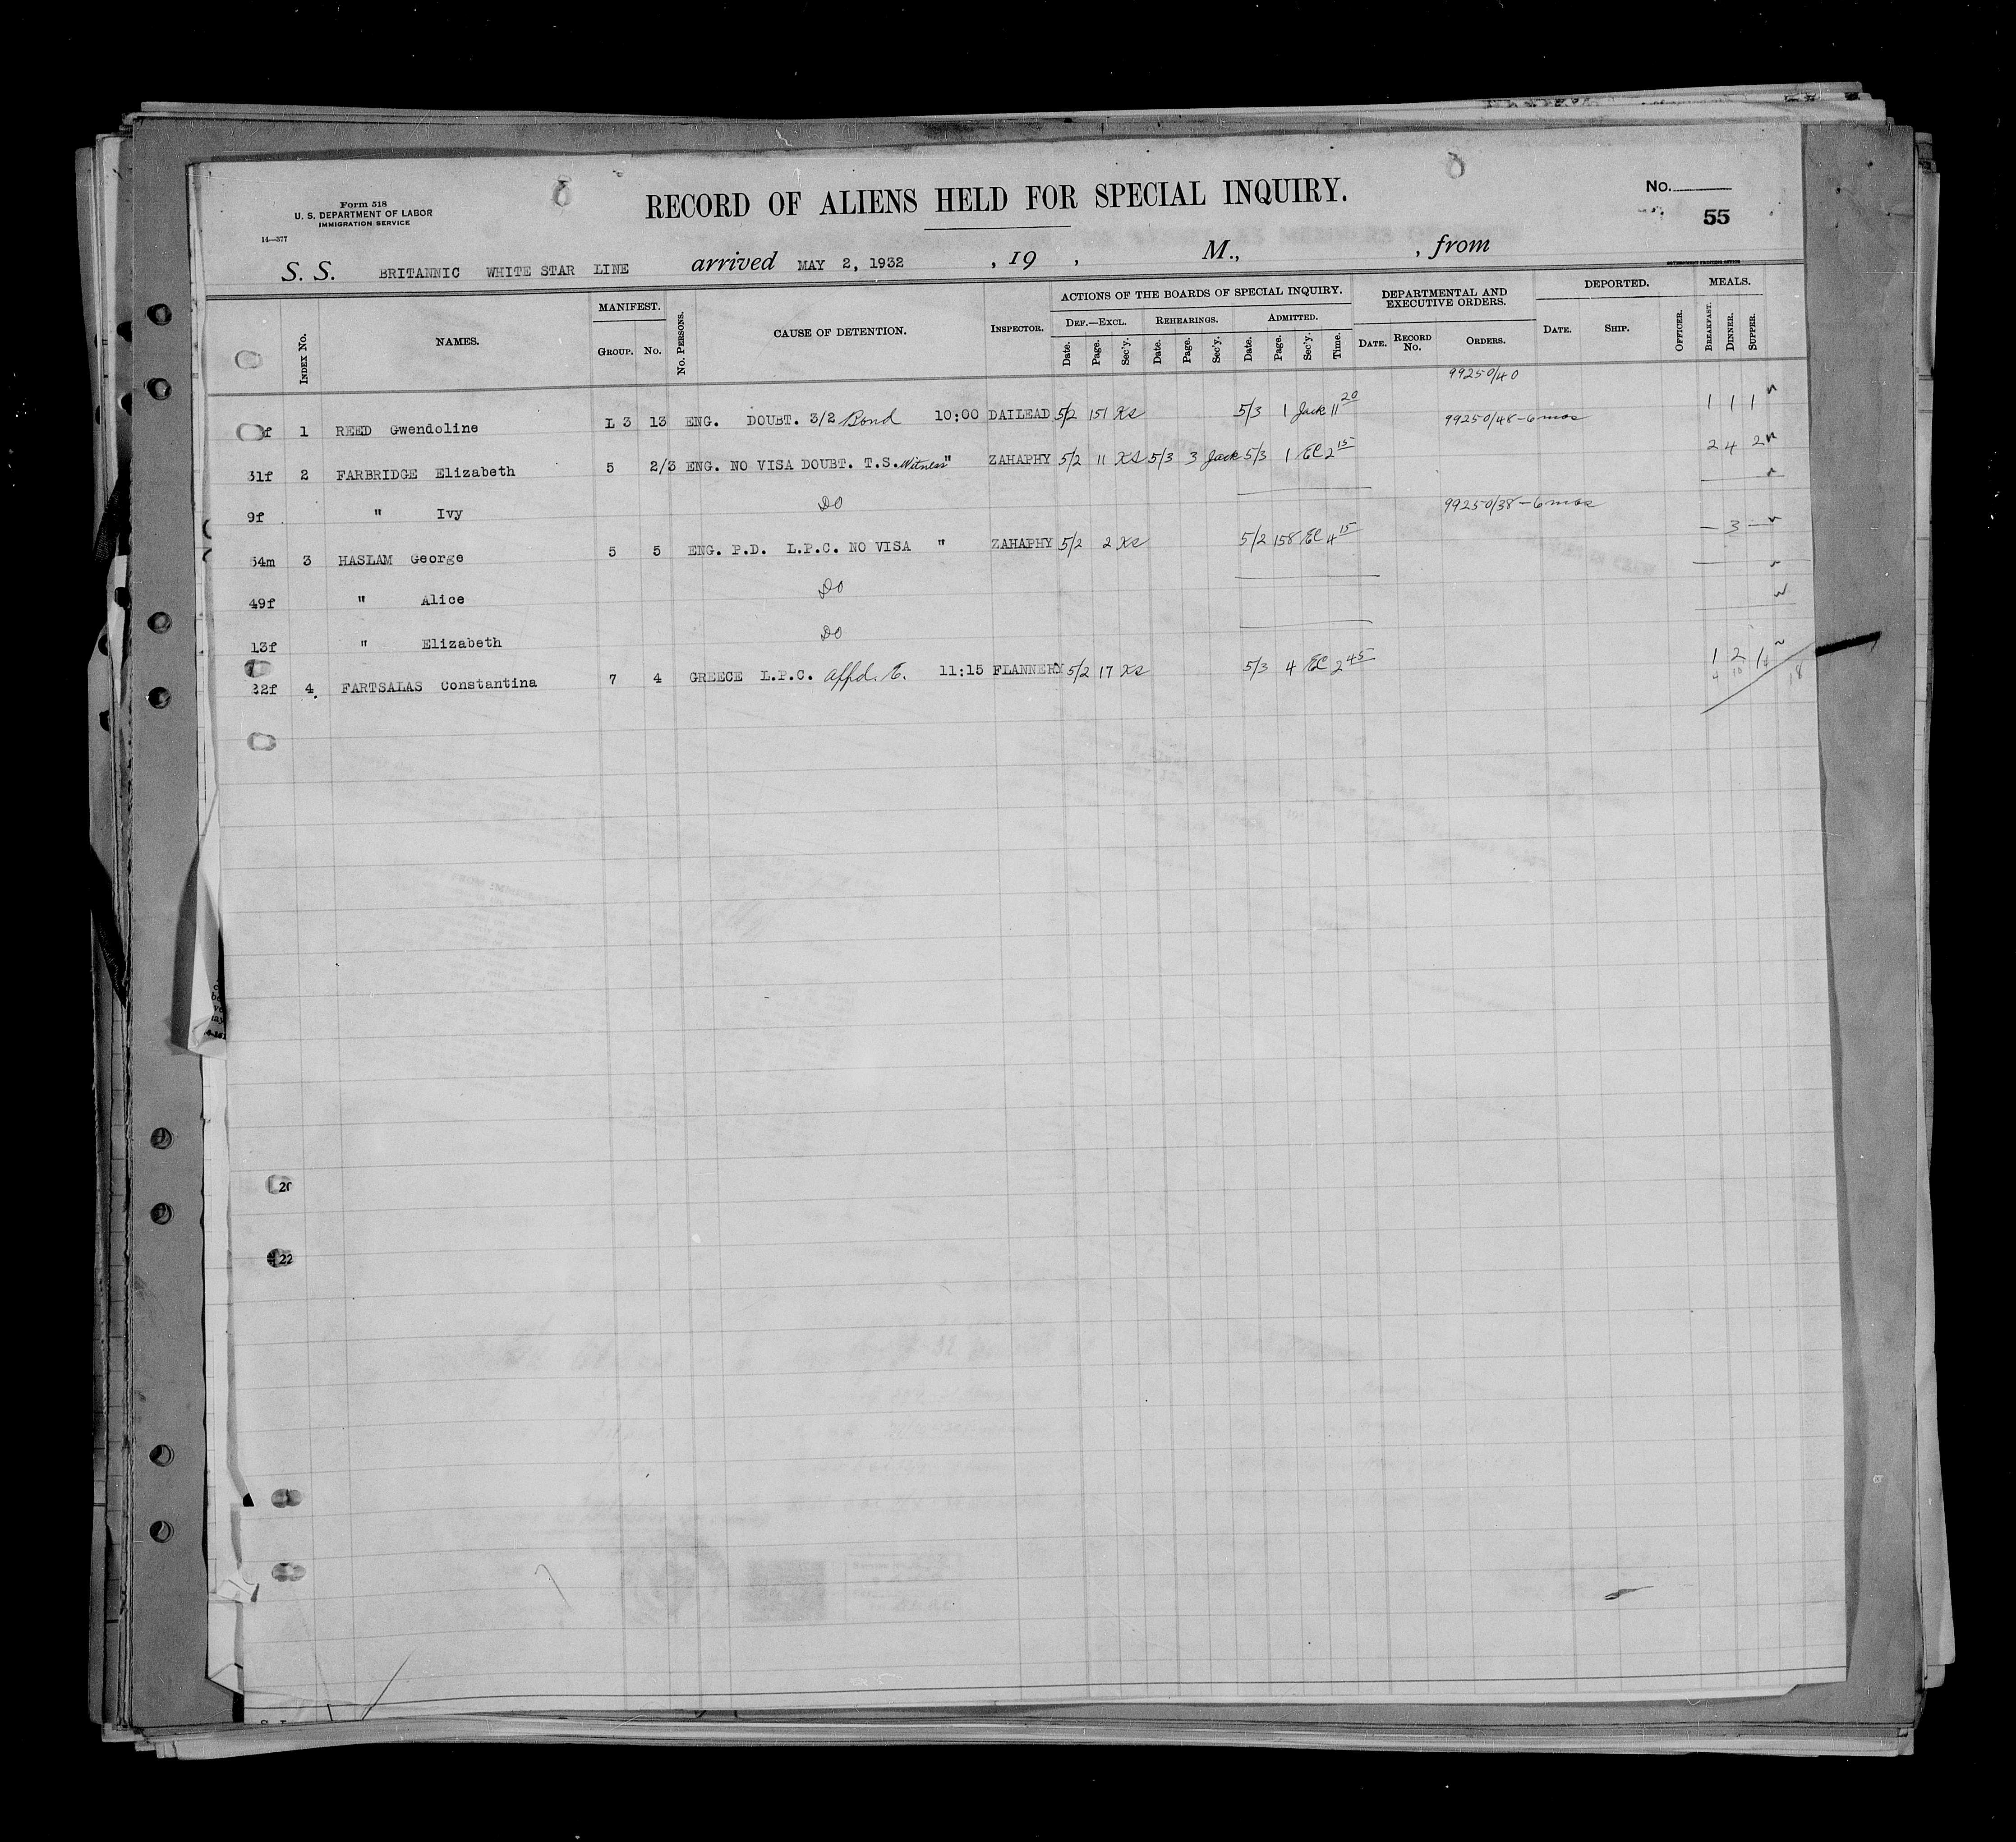 Form 518
U. S. DEPARTMENT OF LABOR
IMMIGRATION SERVICE
14—377
RECORD OF ALIENS HELD FOR SPECIAL INQUIRY.
No.
55
S. S. BRITANNIC WHITE STAR LINE arrived MAY 2, 1932 , 19 , M., , from
INDEX NO. NAMES. MANIFEST. GROUP. NO. NO. PERSONS. CAUSE OF DETENTION. INSPECTOR. ACTIONS OF THE BOARDS OF SPECIAL INQUIRY. DEPARTMENTAL AND EXECUTIVE ORDERS. DEPORTED. MEALS.
DEF.—EXCL. REHEARINGS. ADMITTED.
Date. Page. Sec'y. Date. Page. Sec'y. Date. Page. Sec'y. Time. DATE. RECORD No. ORDERS. DATE. SHIP. OFFICER. BREAKFAST. DINNER. SUPPER.
99250/40
f 1 REED Gwendoline L 3 13 ENG. DOUBT. 3/2 Bond 10:00 DAILEAD 5/2 151 KS 5/3 1 Jack 11 20 1 1 1
99250/48-6 mos
31f 2 FARBRIDGE Elizabeth 5 2/3 ENG. NO VISA DOUBT. T.S. Witness " ZAHAPHY 5/2 11 KS 5/3 3 Jack 5/3 1 EC 2 15 2 4 2
9f " Ivy DO
99250/38-6 mos
54m 3 HASLAM George 5 5 ENG. P.D. L.P.C. NO VISA " ZAHAPHY 5/2 2 KS 5/2 158 EC 4 15 — 3 —
49f " Alice DO
13f " Elizabeth DO
22f 4. FARTSALAS Constantina 7 4 GREECE L.P.C. Affd. 11:15 FLANNERY 5/2 17 KS 5/3 4 EC 2 45 1 2 1
4 10 4 18
20
22